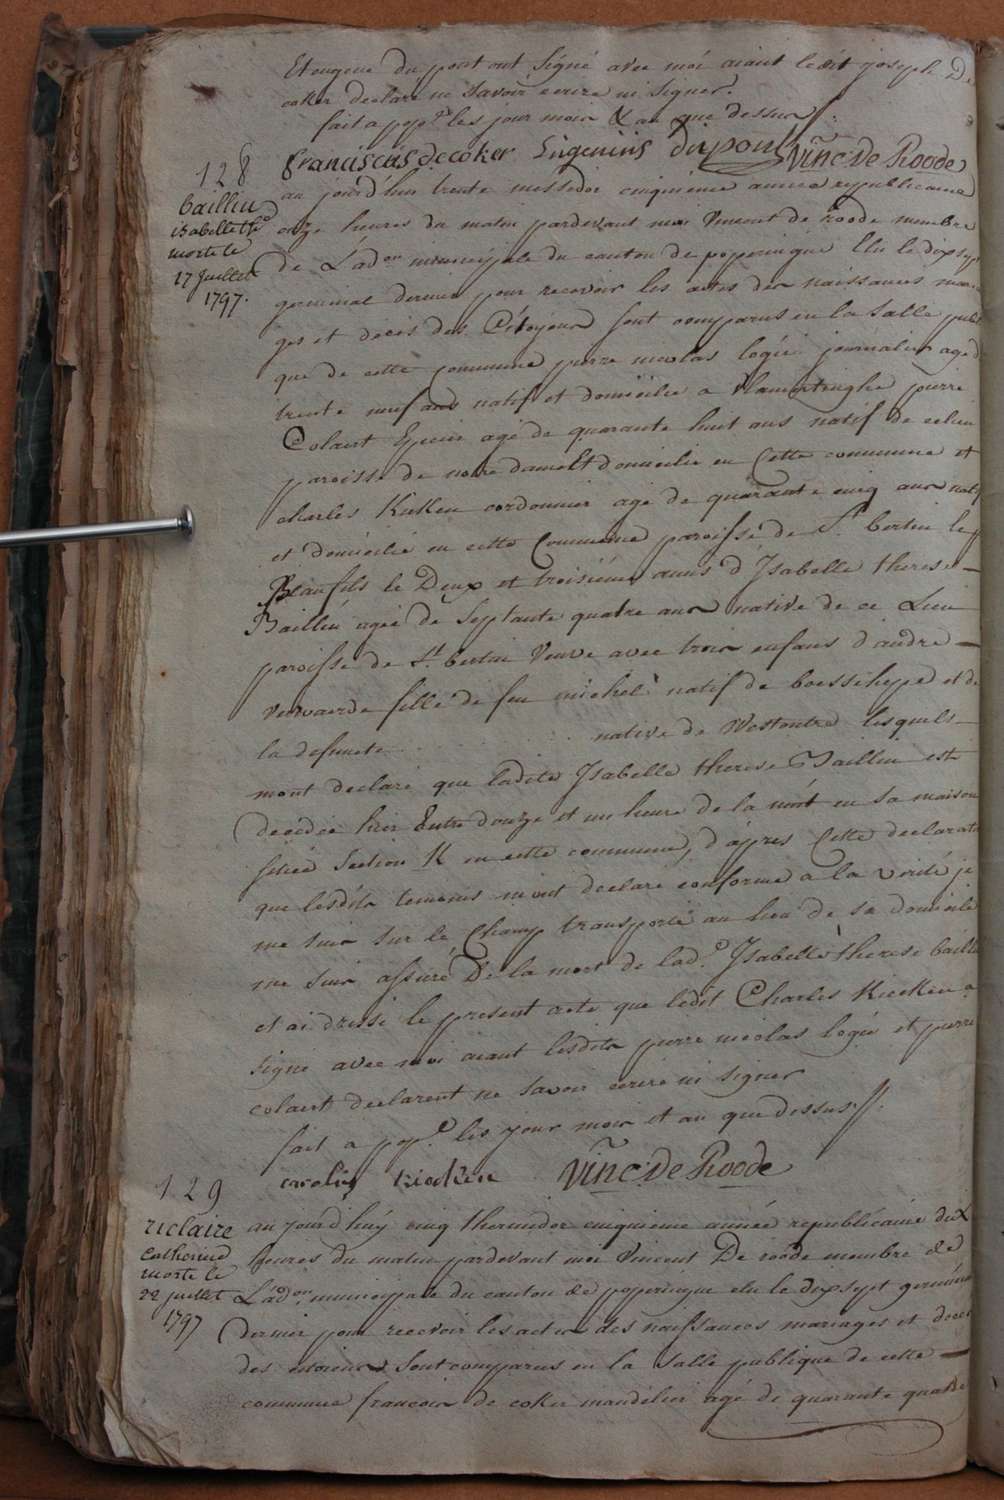 Et eugene du pont ont signé avec moi aiant ledit joseph De
coker declaré ne savoir ecrire ni signer.
fait a pop.e les jour mois & an que dessus
franciscus decoker Eugenius dupont Vinc De Roode
128
Bailliu
isabelle the
morte le
17 juillet
1797.
au jourd'huy trente messidor cinquieme année republicaine
onze heures du matin pardevant moi Vincent de roode membre
de L'adon municipale du canton de poperingue Elu le dix sept
germinal dernier pour recevoir les actes des naissances maria
ges et deces des Citoyens sont comparus en la salle publi
que de cette commune pierre nicolas logie journalier agé de
trente neuf ans natif et domicilié a vlamertinghe pierre
Colaert Epicier agé de quarante huit ans natif de celieu
paroisse de notre dame et domicilié en Cette commune et
charles Kieken cordonnier agé de quarante cinq ans natif
et domicilié en cette Commune paroisse de St bertin le
Beaufils le Deux et troisiéme amis d'Isabelle therese
Bailliu agée de Septante quatre ans native de ce Lieu
paroisse de St bertin Veuve avec trois enfans d'andré
verwaerde fille de feu michel natif de boesschepe et de
la defuncte native de Westoutre lesquels
mont declaré que ladite Isabelle therese Bailliu est
décédée hier Entre douze et un heure de la nuit en sa maison
sitüée Section K en cette commune, d'apres Cette declarati
que lesdits temoins m'ont declaré conforme a la verité je
me suis sur le Champ transporté au lieu de se domicile
me suis assuré De la mort de lad.e Isabelle therese baillu
et ai dressé le present acte que ledit Charles Kiecken a
signe avec moi aiant lesdits pierre nicolas logie et pierre
colaert declarent ne savoir ecrire ni signer
fait a pop.e les jour mois et an que dessus
carolus kiecken Vinc De Roode
129
riclaire
Catherine
morte le
22 juillet
1797
au jourd'huy cinq thermidor cinquieme année republicaine dix
heures du matin pardevant moi Vincent De roode membre de
L'adon municipale du canton de poperingue elu le dix sept germinal
dernier pour recevoir les actes des naissances mariages et deces
des citoiens Sont comparus en la Salle publique de cette
commune francois de coker mandelier agé de quarante quatre